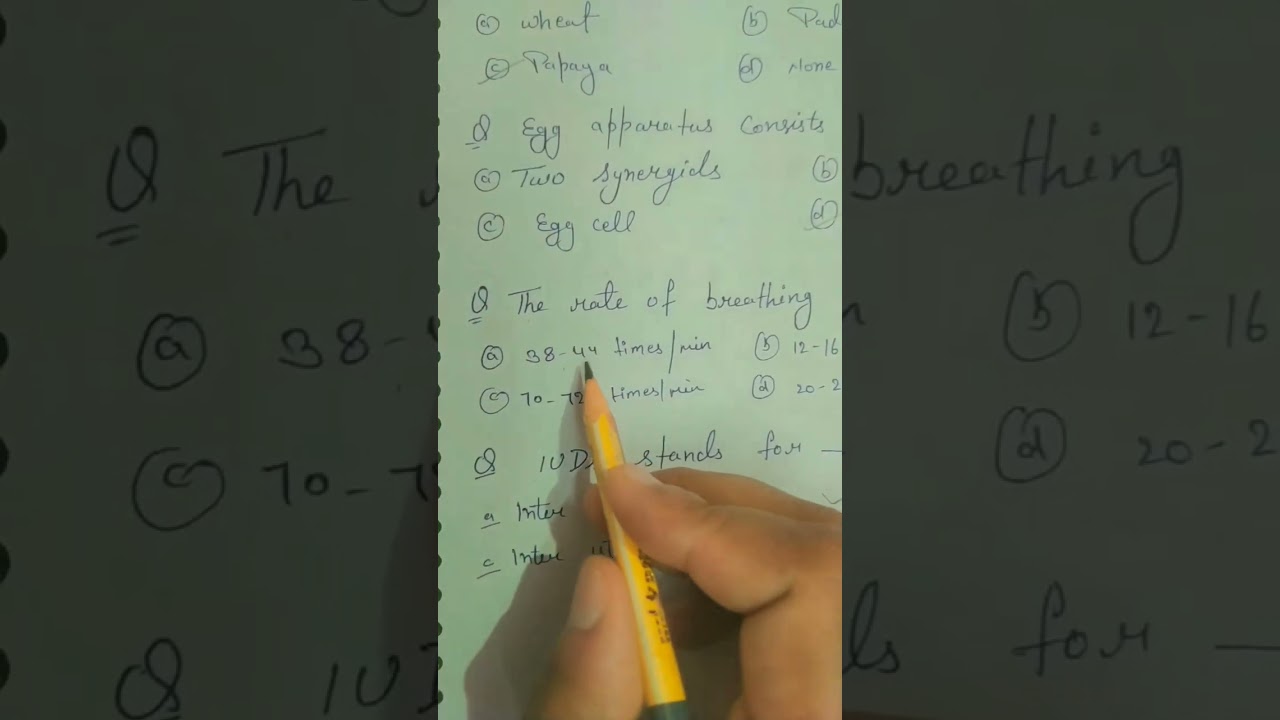 (a) wheat (b) Pad
(c) Papaya (d) None
Q Egg apparatus consists
(a) Two synergids (b)
(c) Egg cell (d)
Q The rate of breathing
(a) 38-44 times/min (b) 12-16
(c) 70-72 times/min (d) 20-2
Q IUD stands for —
a Inter
c Inter